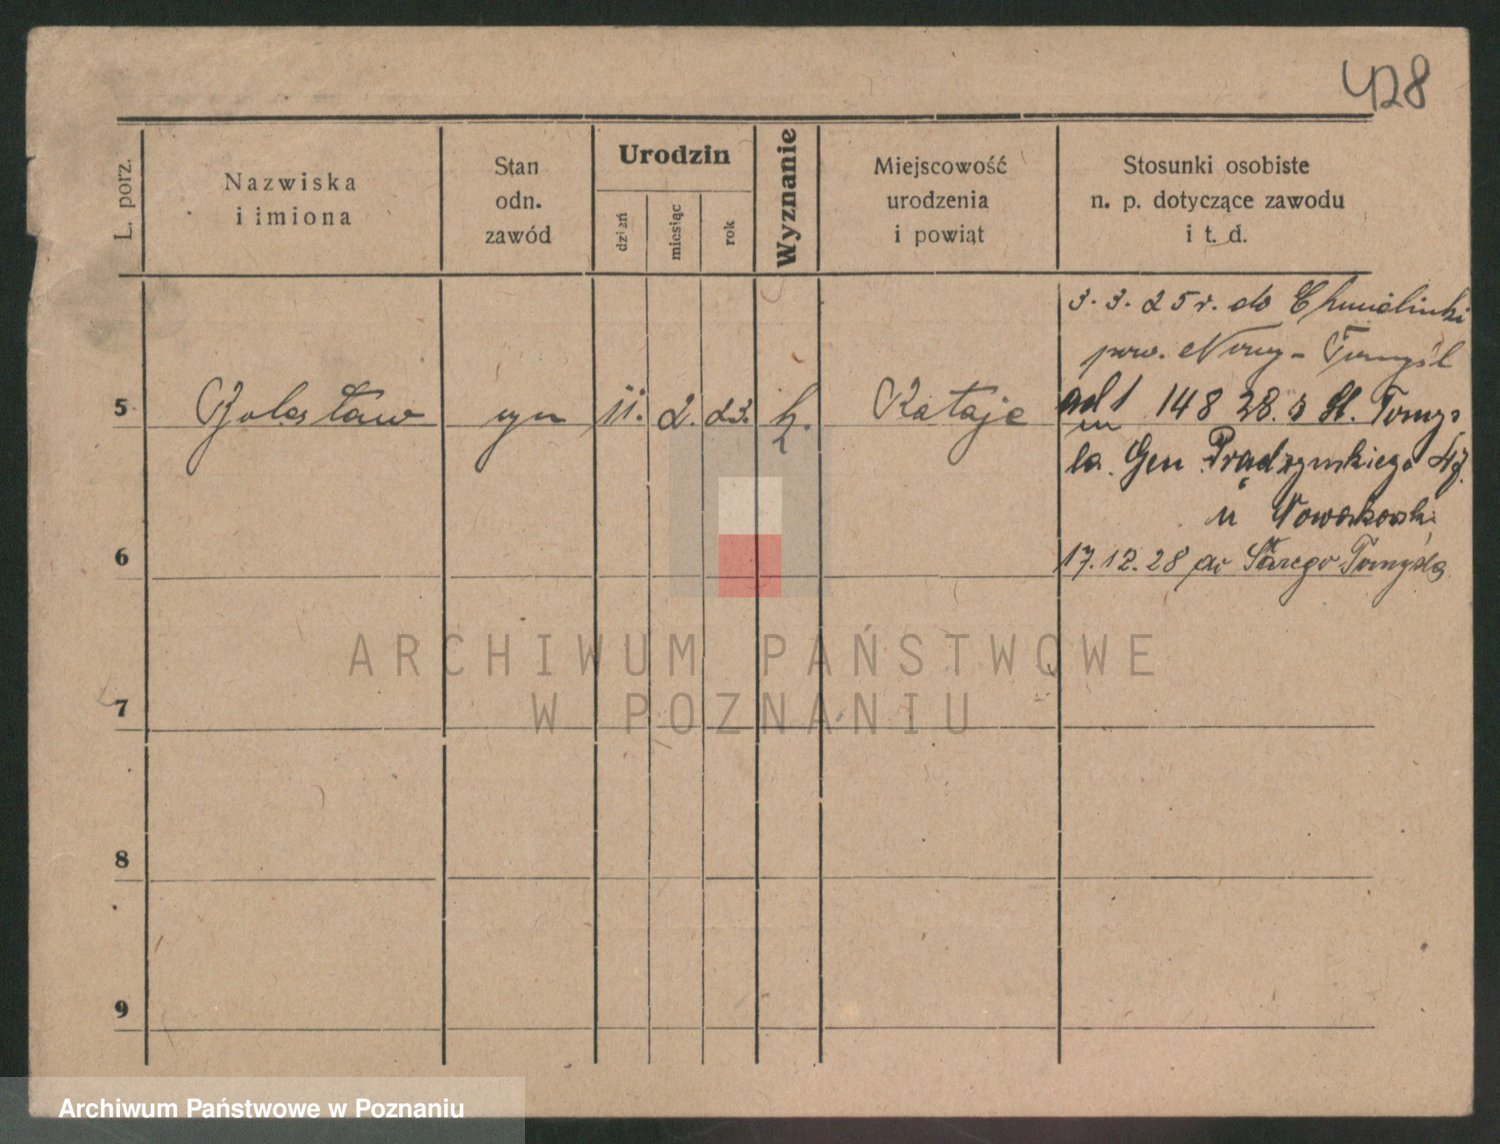 428
L. porz.
Nazwiska
i imiona
Stan
odn.
zawód
Urodzin
dzień
miesiąc
rok
Wyznanie
Miejscowość
urodzenia
i powiat
Stosunki osobiste
n. p. dotyczące zawodu
i t. d.
3. 3. 25 r. do Chmielinki
pow. Nowy-Tomyśl
5 Bolesław syn 11. 2. 23. k. Rataje
ad 1 14 8 28. z St. Tomyś
la. Gen Prądzyńskiego 47.
u Nowakowski
6
17. 12. 28 do Starego Tomyśla
7
8
9
ARCHIWUM PAŃSTWOWE
W POZNANIU
Archiwum Państwowe w Poznaniu